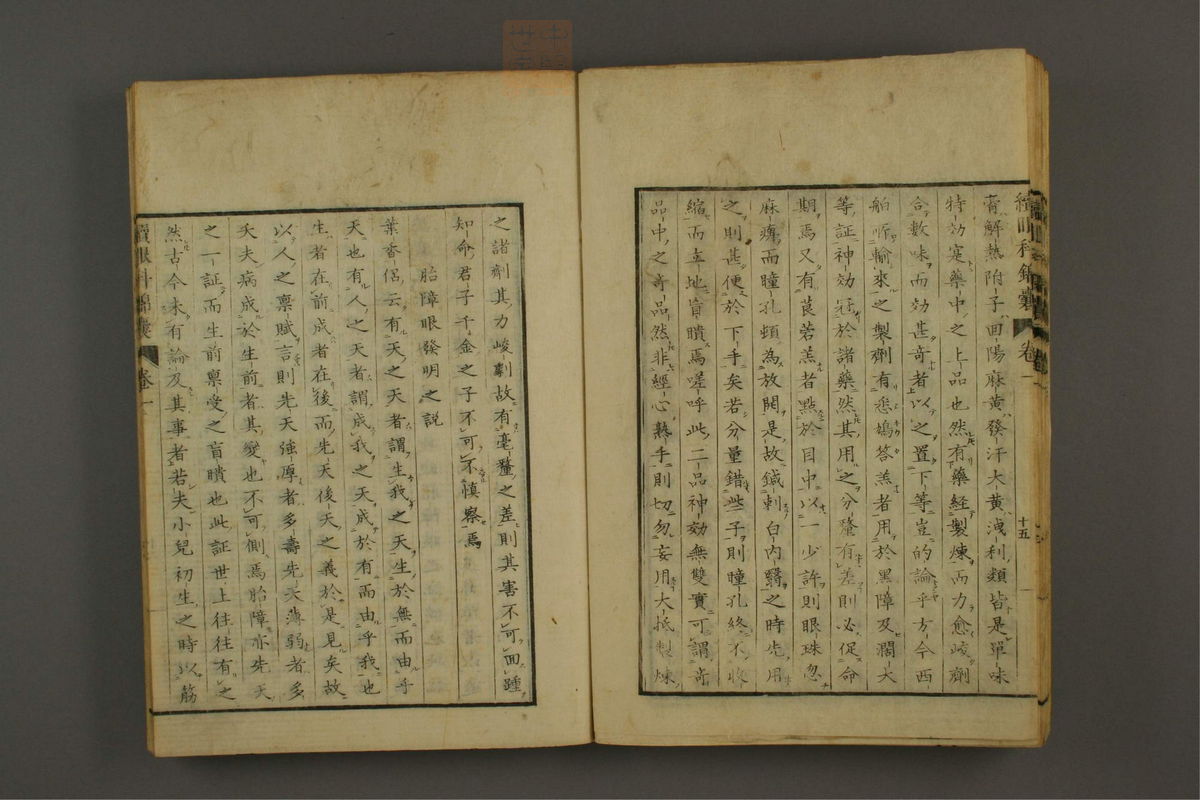 續眼科錦囊 卷一 十五
膏解熱附子回陽麻黄發汗大黄洩利類皆是單味
特効寔藥中之上品也然有藥經製煉而力愈峻劑
合數味而効甚奇者以之置下等豈的論乎方今西
舶所輸來之製劑有悉鳩答羔者用於黒障及濶大
等証神効冠於諸藥然其用之分釐有差則必促命
期焉又有莨若羔者點於目中以一少許則眼珠忽
麻痺而瞳孔頓為放開是故鍼刺白内翳之時先用
之則甚便於下手矣若分量錯些子則瞳孔終不收
縮而立地盲瞶焉嗟呼此二品神効無雙實可謂奇
品中之奇品然非經心熟手則切勿妄用大抵製煉
之諸劑其力峻劇故有毫釐之差則其害不可回踵
知命君子千金之子不可不慎察焉
胎障眼發明之説
葉沓侶云有天之天者謂生我之天生於無而由乎
天也有人之天者謂成我之天成於有而由乎我也
生者在前成者在後而先天後天之義於是見矣故
以人之禀賦言則先天強厚者多壽先天薄弱者多
夭夫病成於生前者其變也不可側焉胎障亦先天
之一証而生前禀受之盲瞶也此証世上往往有之
然古今未有論及其事者若夫小兒初生之時以筋
續眼科錦囊 卷一